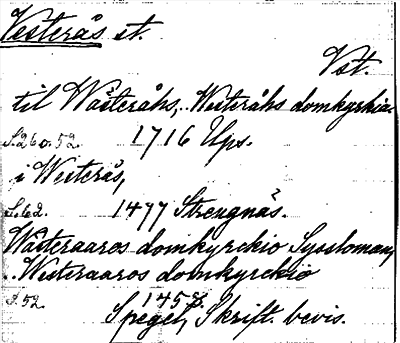 Vesterås st.
Vst.
til Wästeråhs, Westeråhs domkyrkia.
S.260.52. 1716 Ups.
i Westerås,
S.62. 1477 Strengnäs.
Wästeraaros domkyrckio Syssloman,
Westeraaros domkyrckio
S.52. 1457.
Spegel, Skrift. bevis.